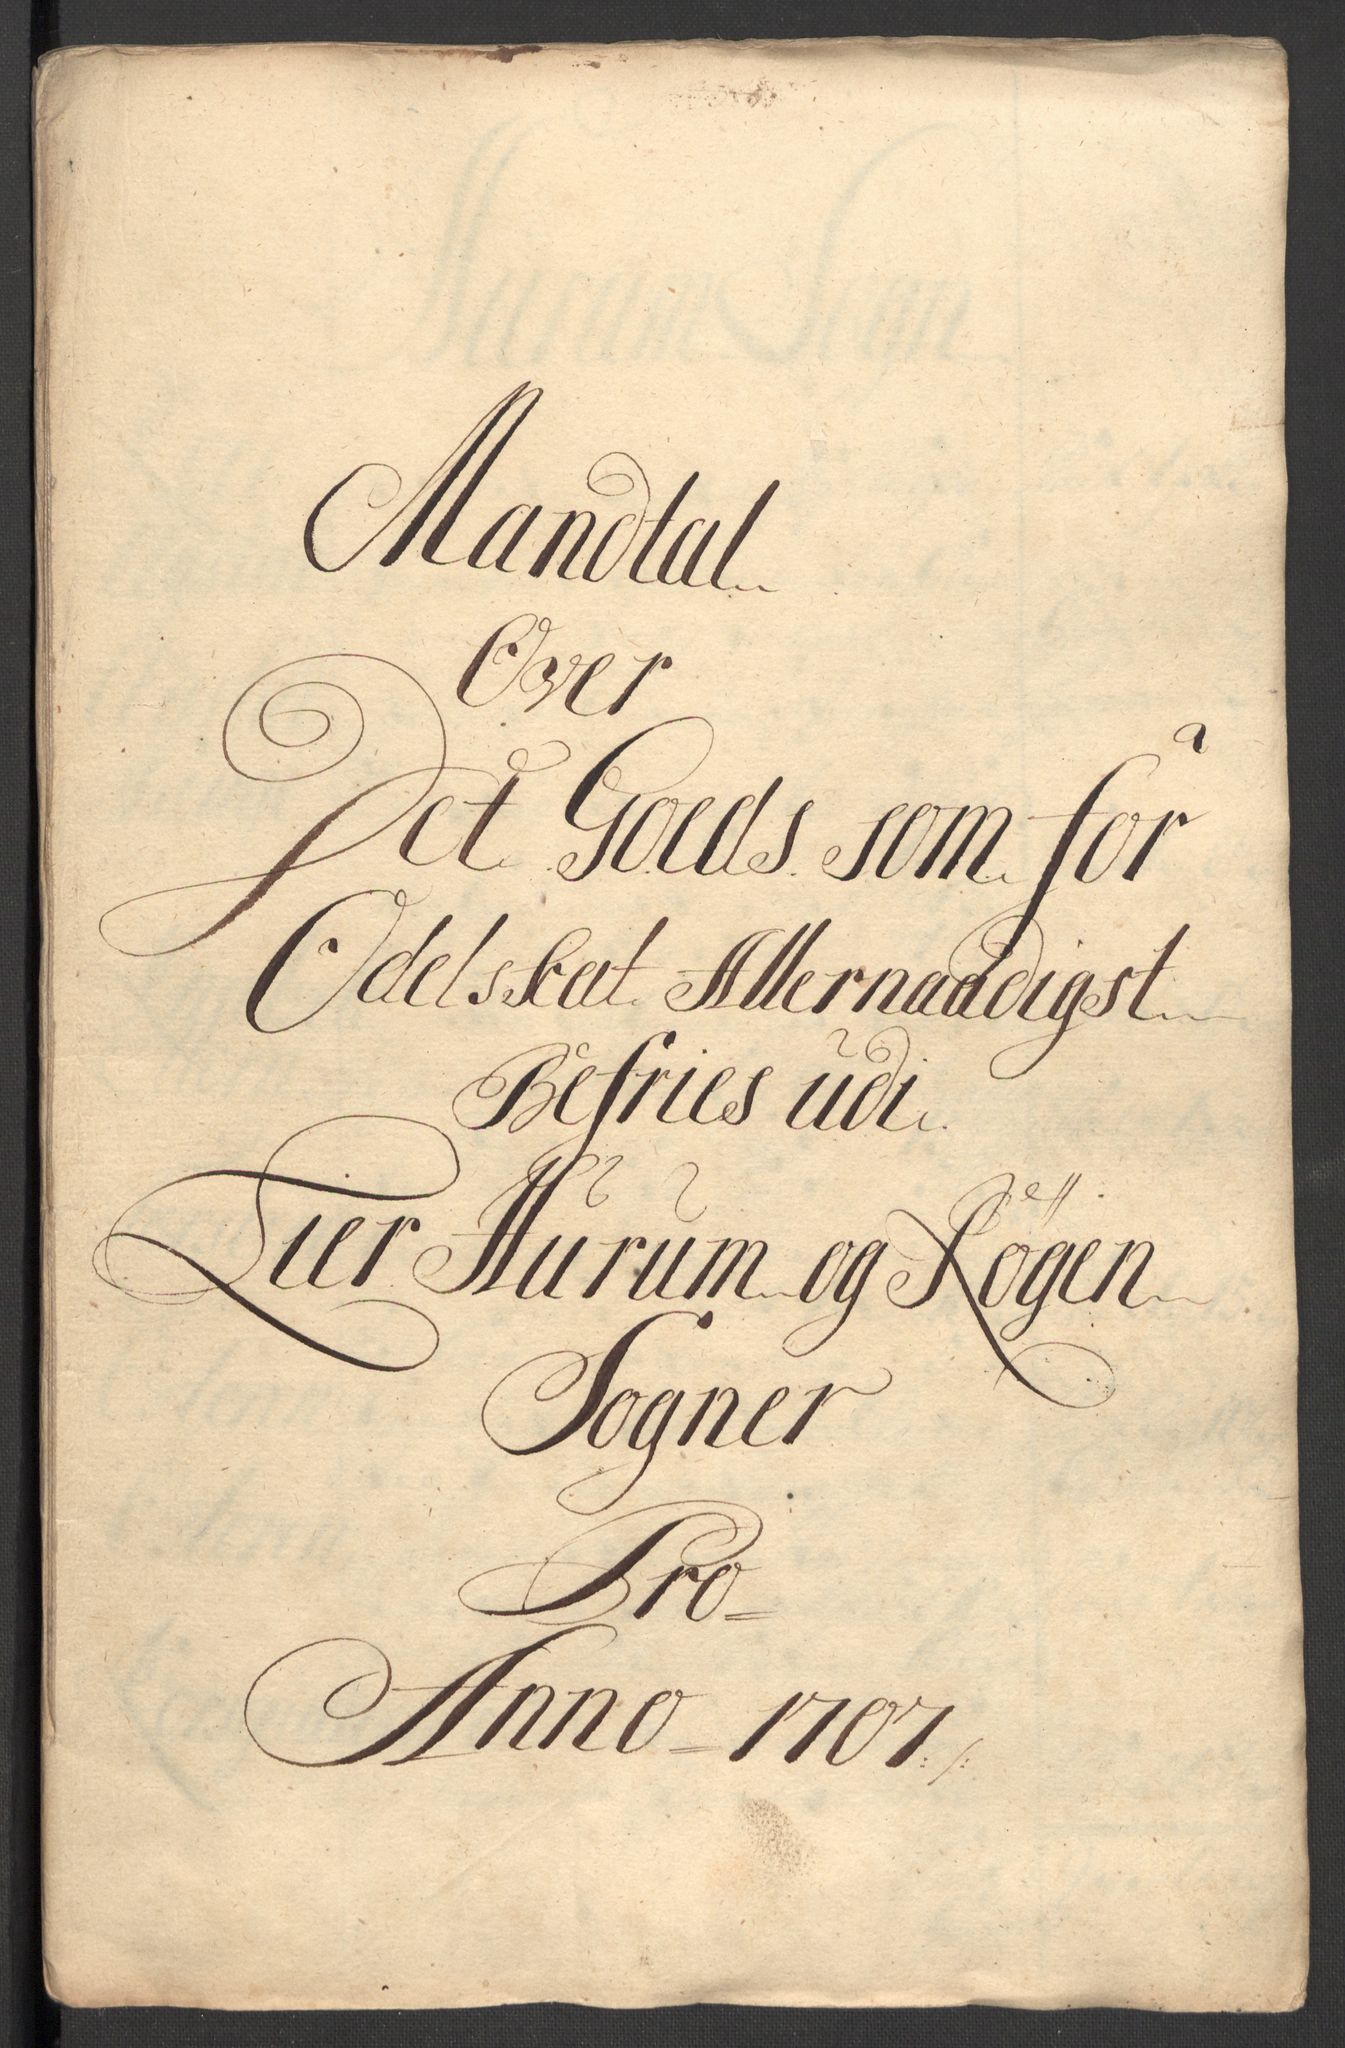 Mandtal
Over
Det Goeds som for
Odelsskat Allernaadigst
Befries udi
Lier Hurum og Røgen
Sogner
Pro
Anno - 1707 :/: